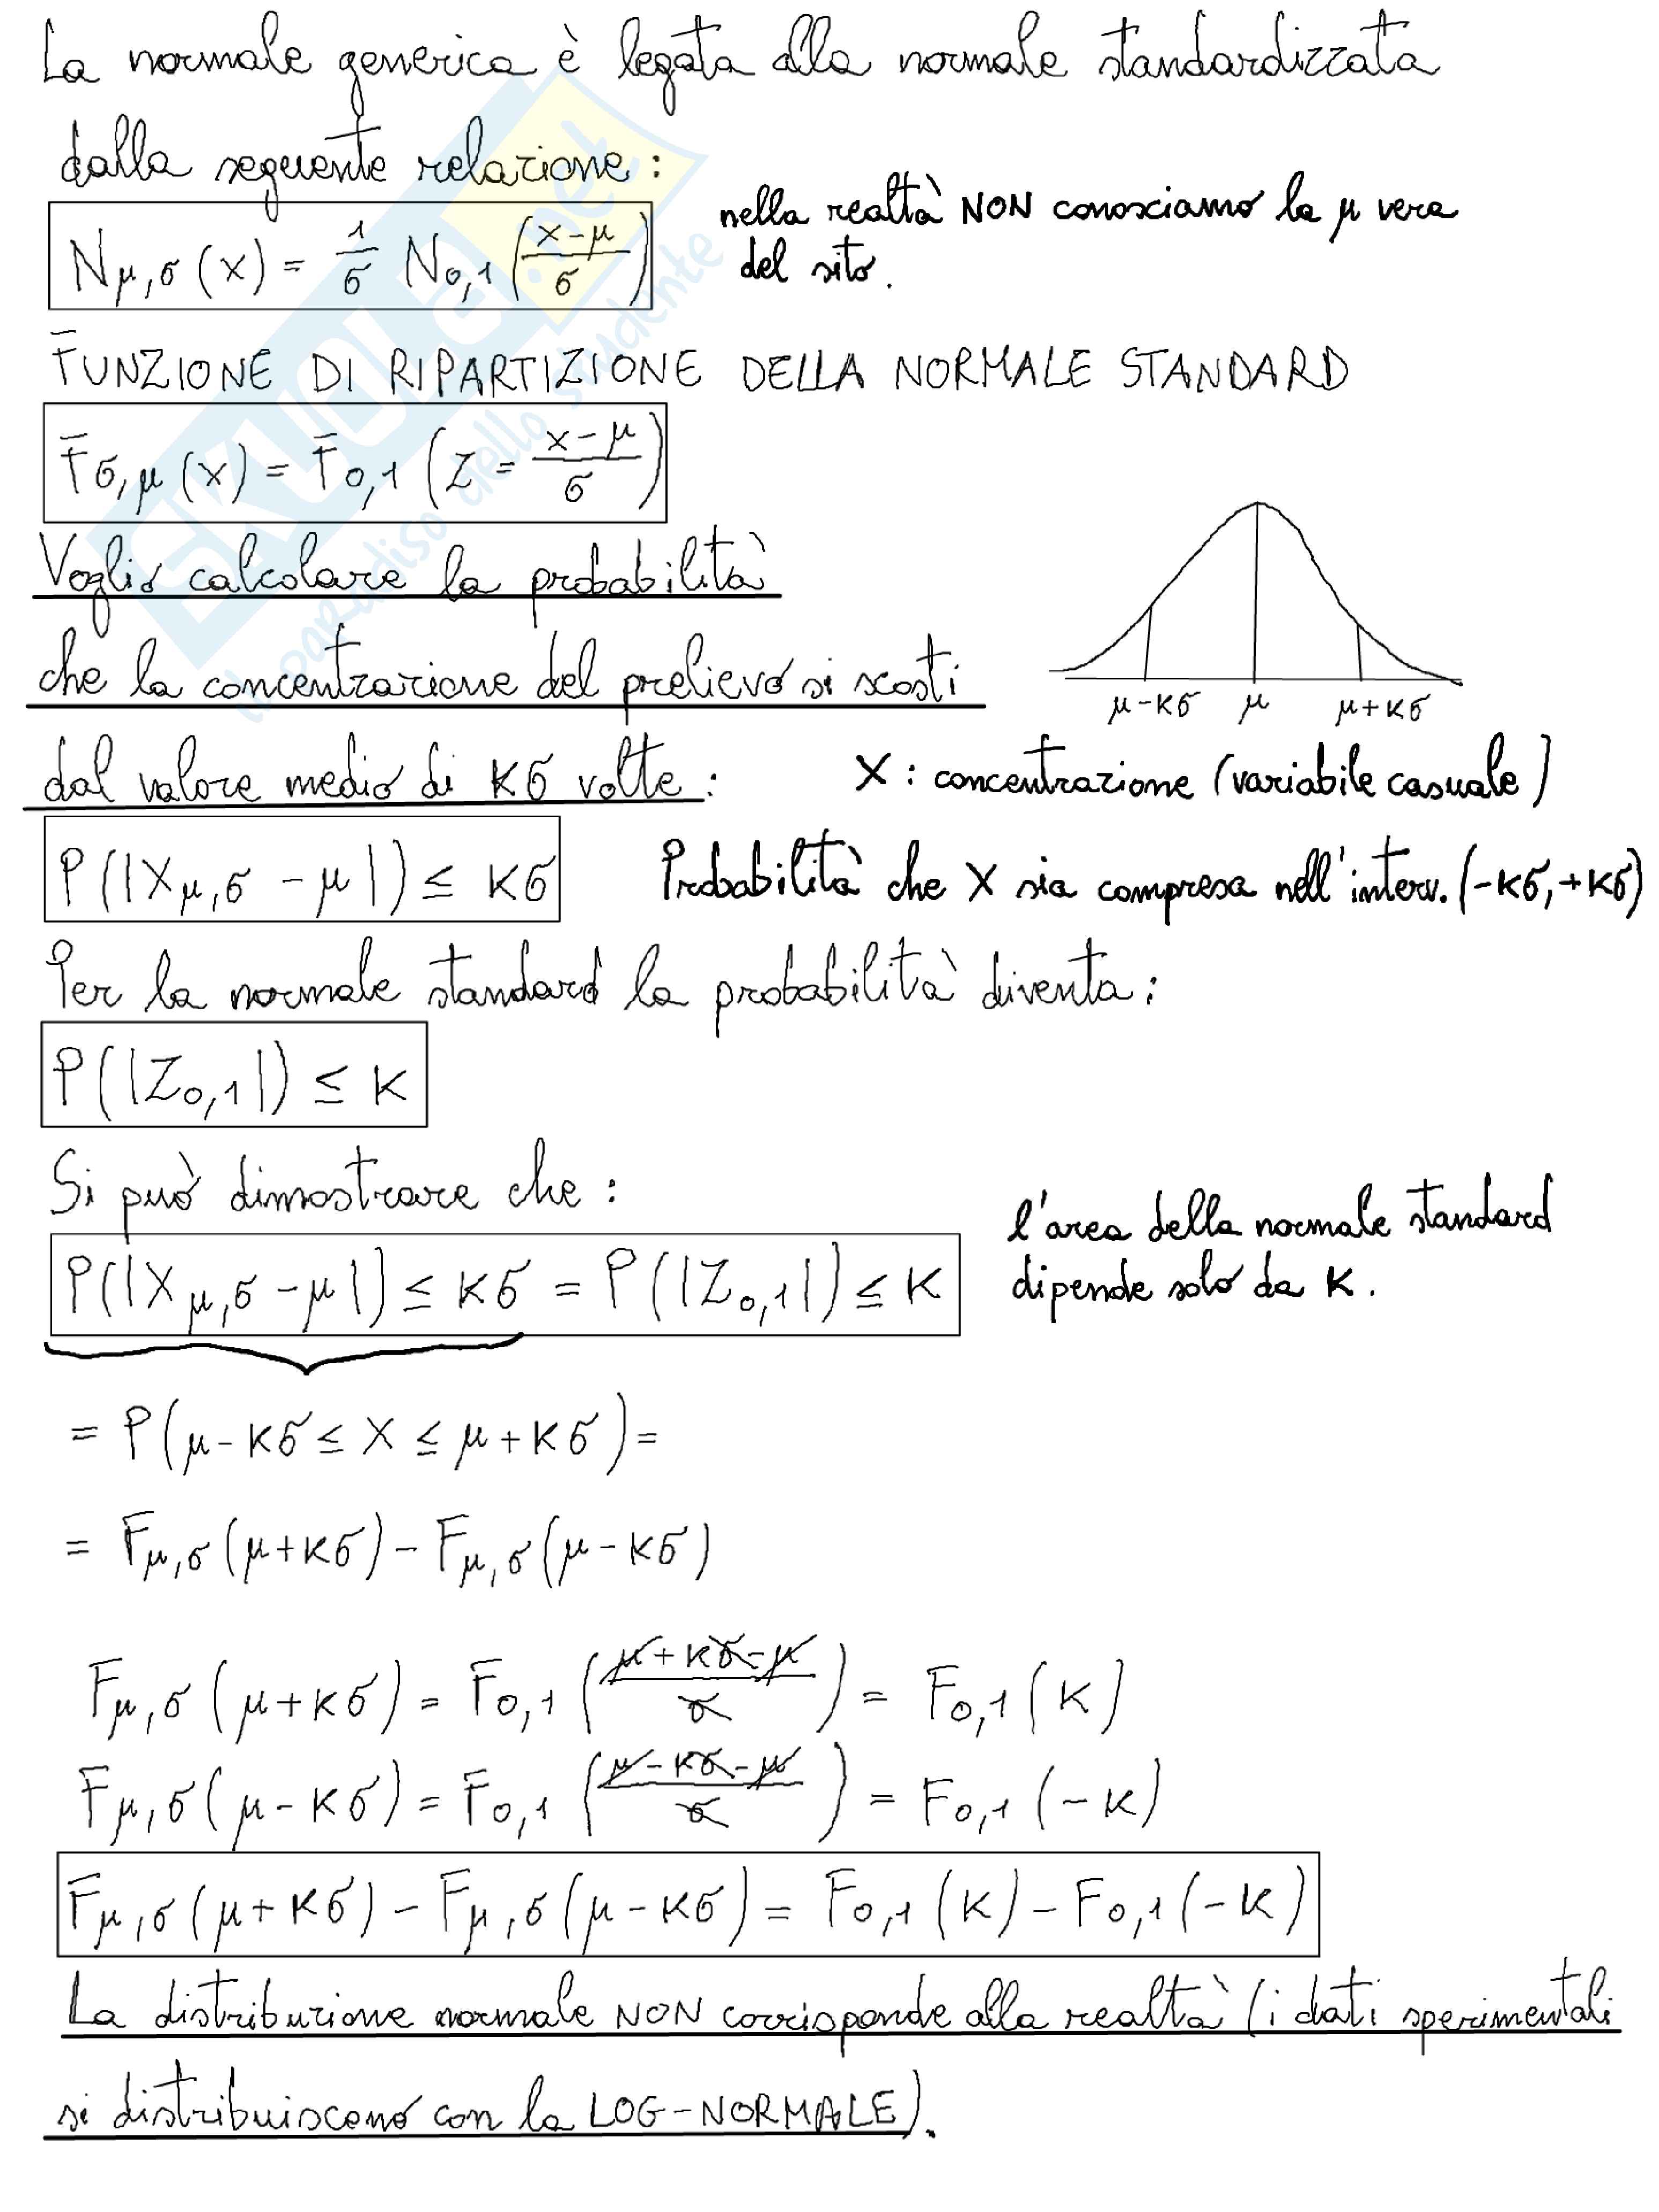 La normale generica è legata alla normale standardizzata
dalla seguente relazione:
Nμ,σ (x) = 1/σ N0,1 ((x-μ)/σ)
nella realtà NON conosciamo la μ vera
del sito.
FUNZIONE DI RIPARTIZIONE DELLA NORMALE STANDARD
Fσ,μ (x) = F0,1 (Z = (x-μ)/σ)
Voglio calcolare la probabilità
che la concentrazione del prelievo si scosti
dal valore medio di Kσ volte:
μ-Kσ μ μ+Kσ
X: concentrazione (variabile casuale)
P(|Xμ,σ - μ|) ≤ Kσ
Probabilità che X sia compresa nell'interv. (-Kσ,+Kσ)
Per la normale standard la probabilità diventa:
P(|Z0,1|) ≤ K
Si può dimostrare che:
P(|Xμ,σ - μ|) ≤ Kσ = P(|Z0,1|) ≤ K
l'area della normale standard
dipende solo da K.
= P(μ-Kσ ≤ X ≤ μ+Kσ) =
= Fμ,σ (μ+Kσ) - Fμ,σ (μ-Kσ)
Fμ,σ (μ+Kσ) = F0,1 ((μ+Kσ-μ)/σ) = F0,1 (K)
Fμ,σ (μ-Kσ) = F0,1 ((μ-Kσ-μ)/σ) = F0,1 (-K)
Fμ,σ (μ+Kσ) - Fμ,σ (μ-Kσ) = F0,1 (K) - F0,1 (-K)
La distribuzione normale NON corrisponde alla realtà (i dati sperimentali
si distribuiscono con la LOG-NORMALE).
SKUOLA.net
il paradiso dello studente